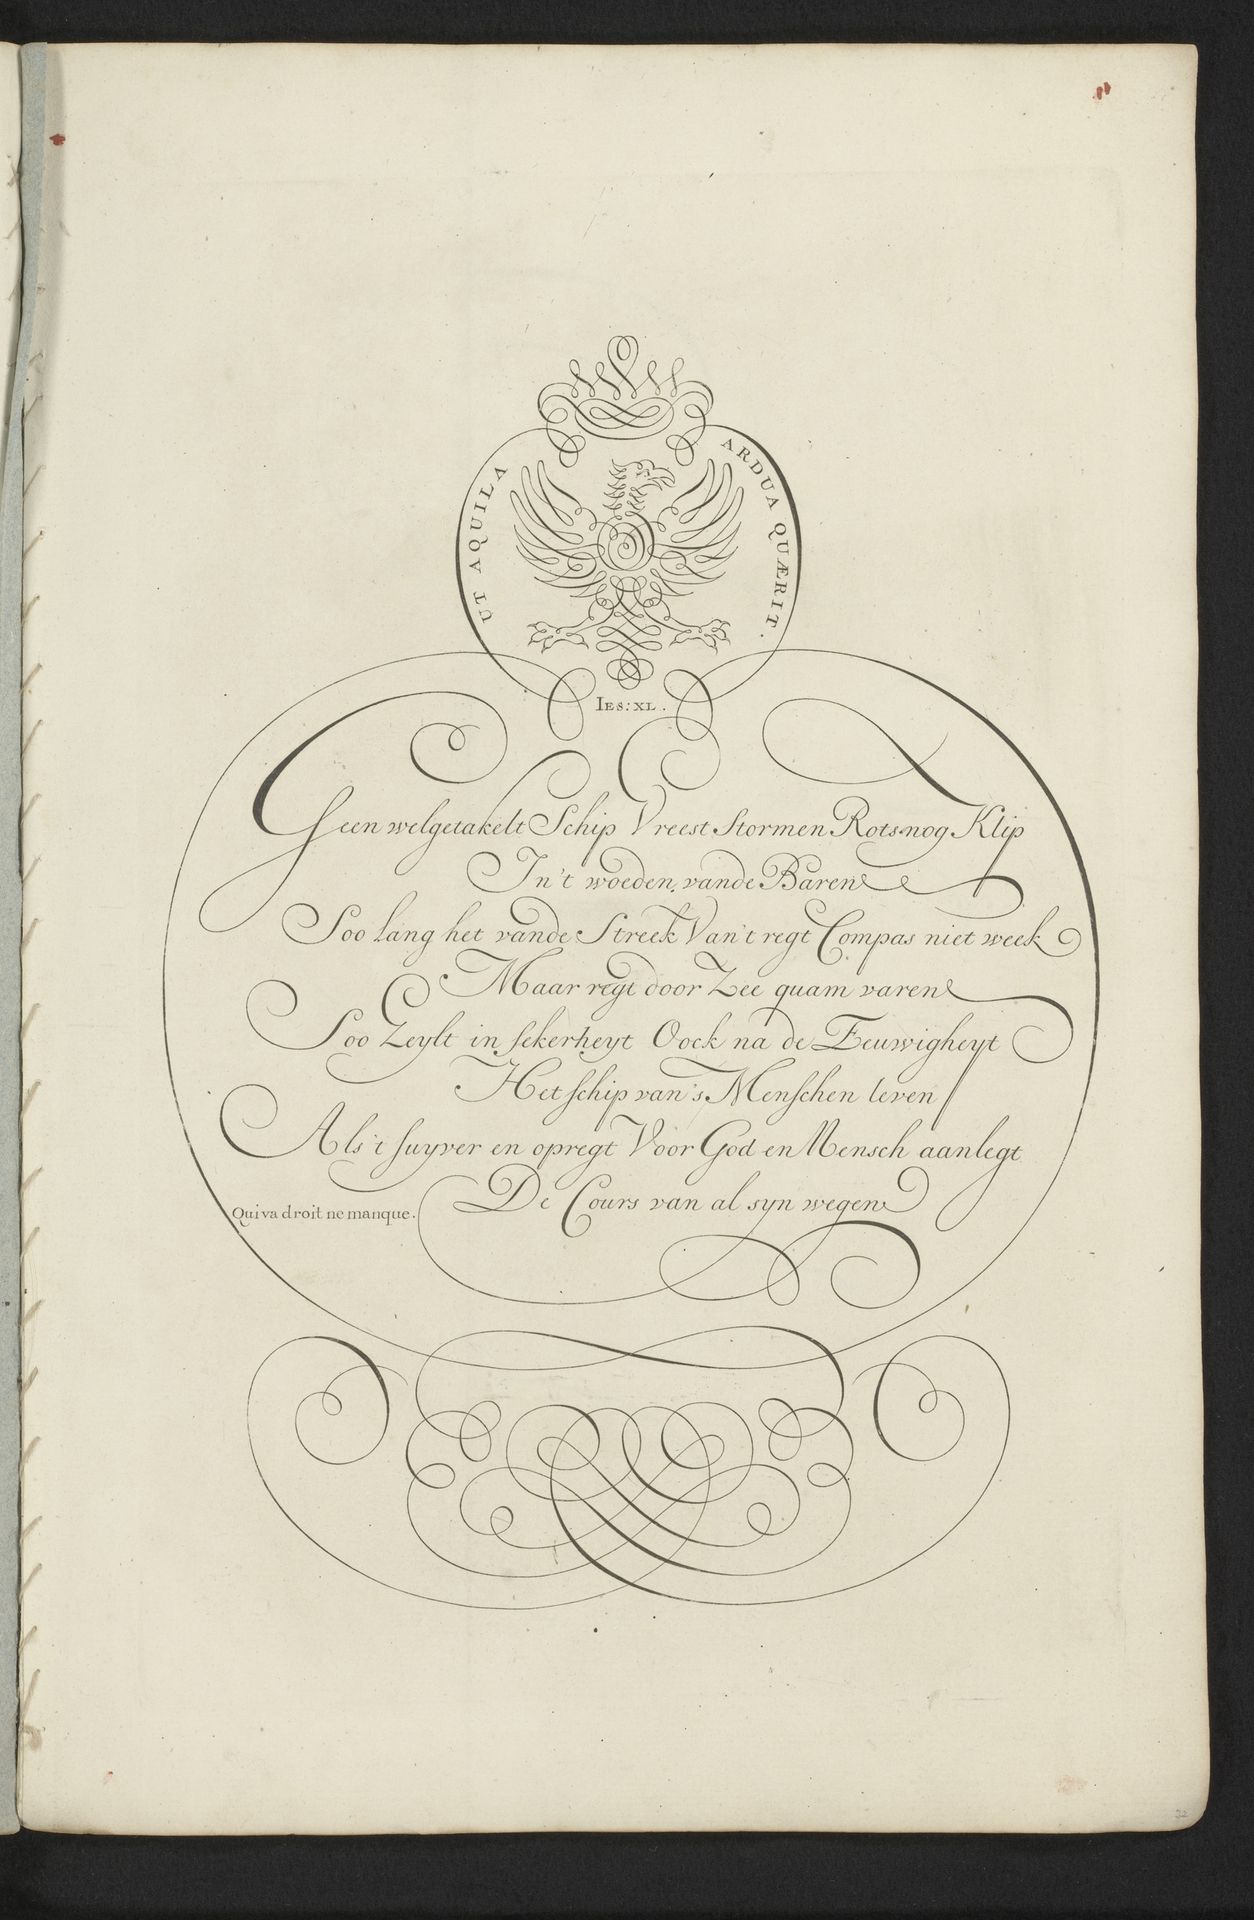 UT AQUILA ARDUA QUÆRIT.
IES: XL.
Geen welgetakelt Schip Vreest Stormen Rots nog Klip
In't woeden vande Baren
Soo lang het vande Streek Van't regt Compas niet week
Maar regt door Zee quam varen
Soo Zeylt in sekerheyt Oock na de Eeuwigheyt
Het schip van's Menschen leven
Als't suyver en opregt Voor God en Mensch aanlegt
De Cours van al syn wegen
Qui va droit ne manque.
32